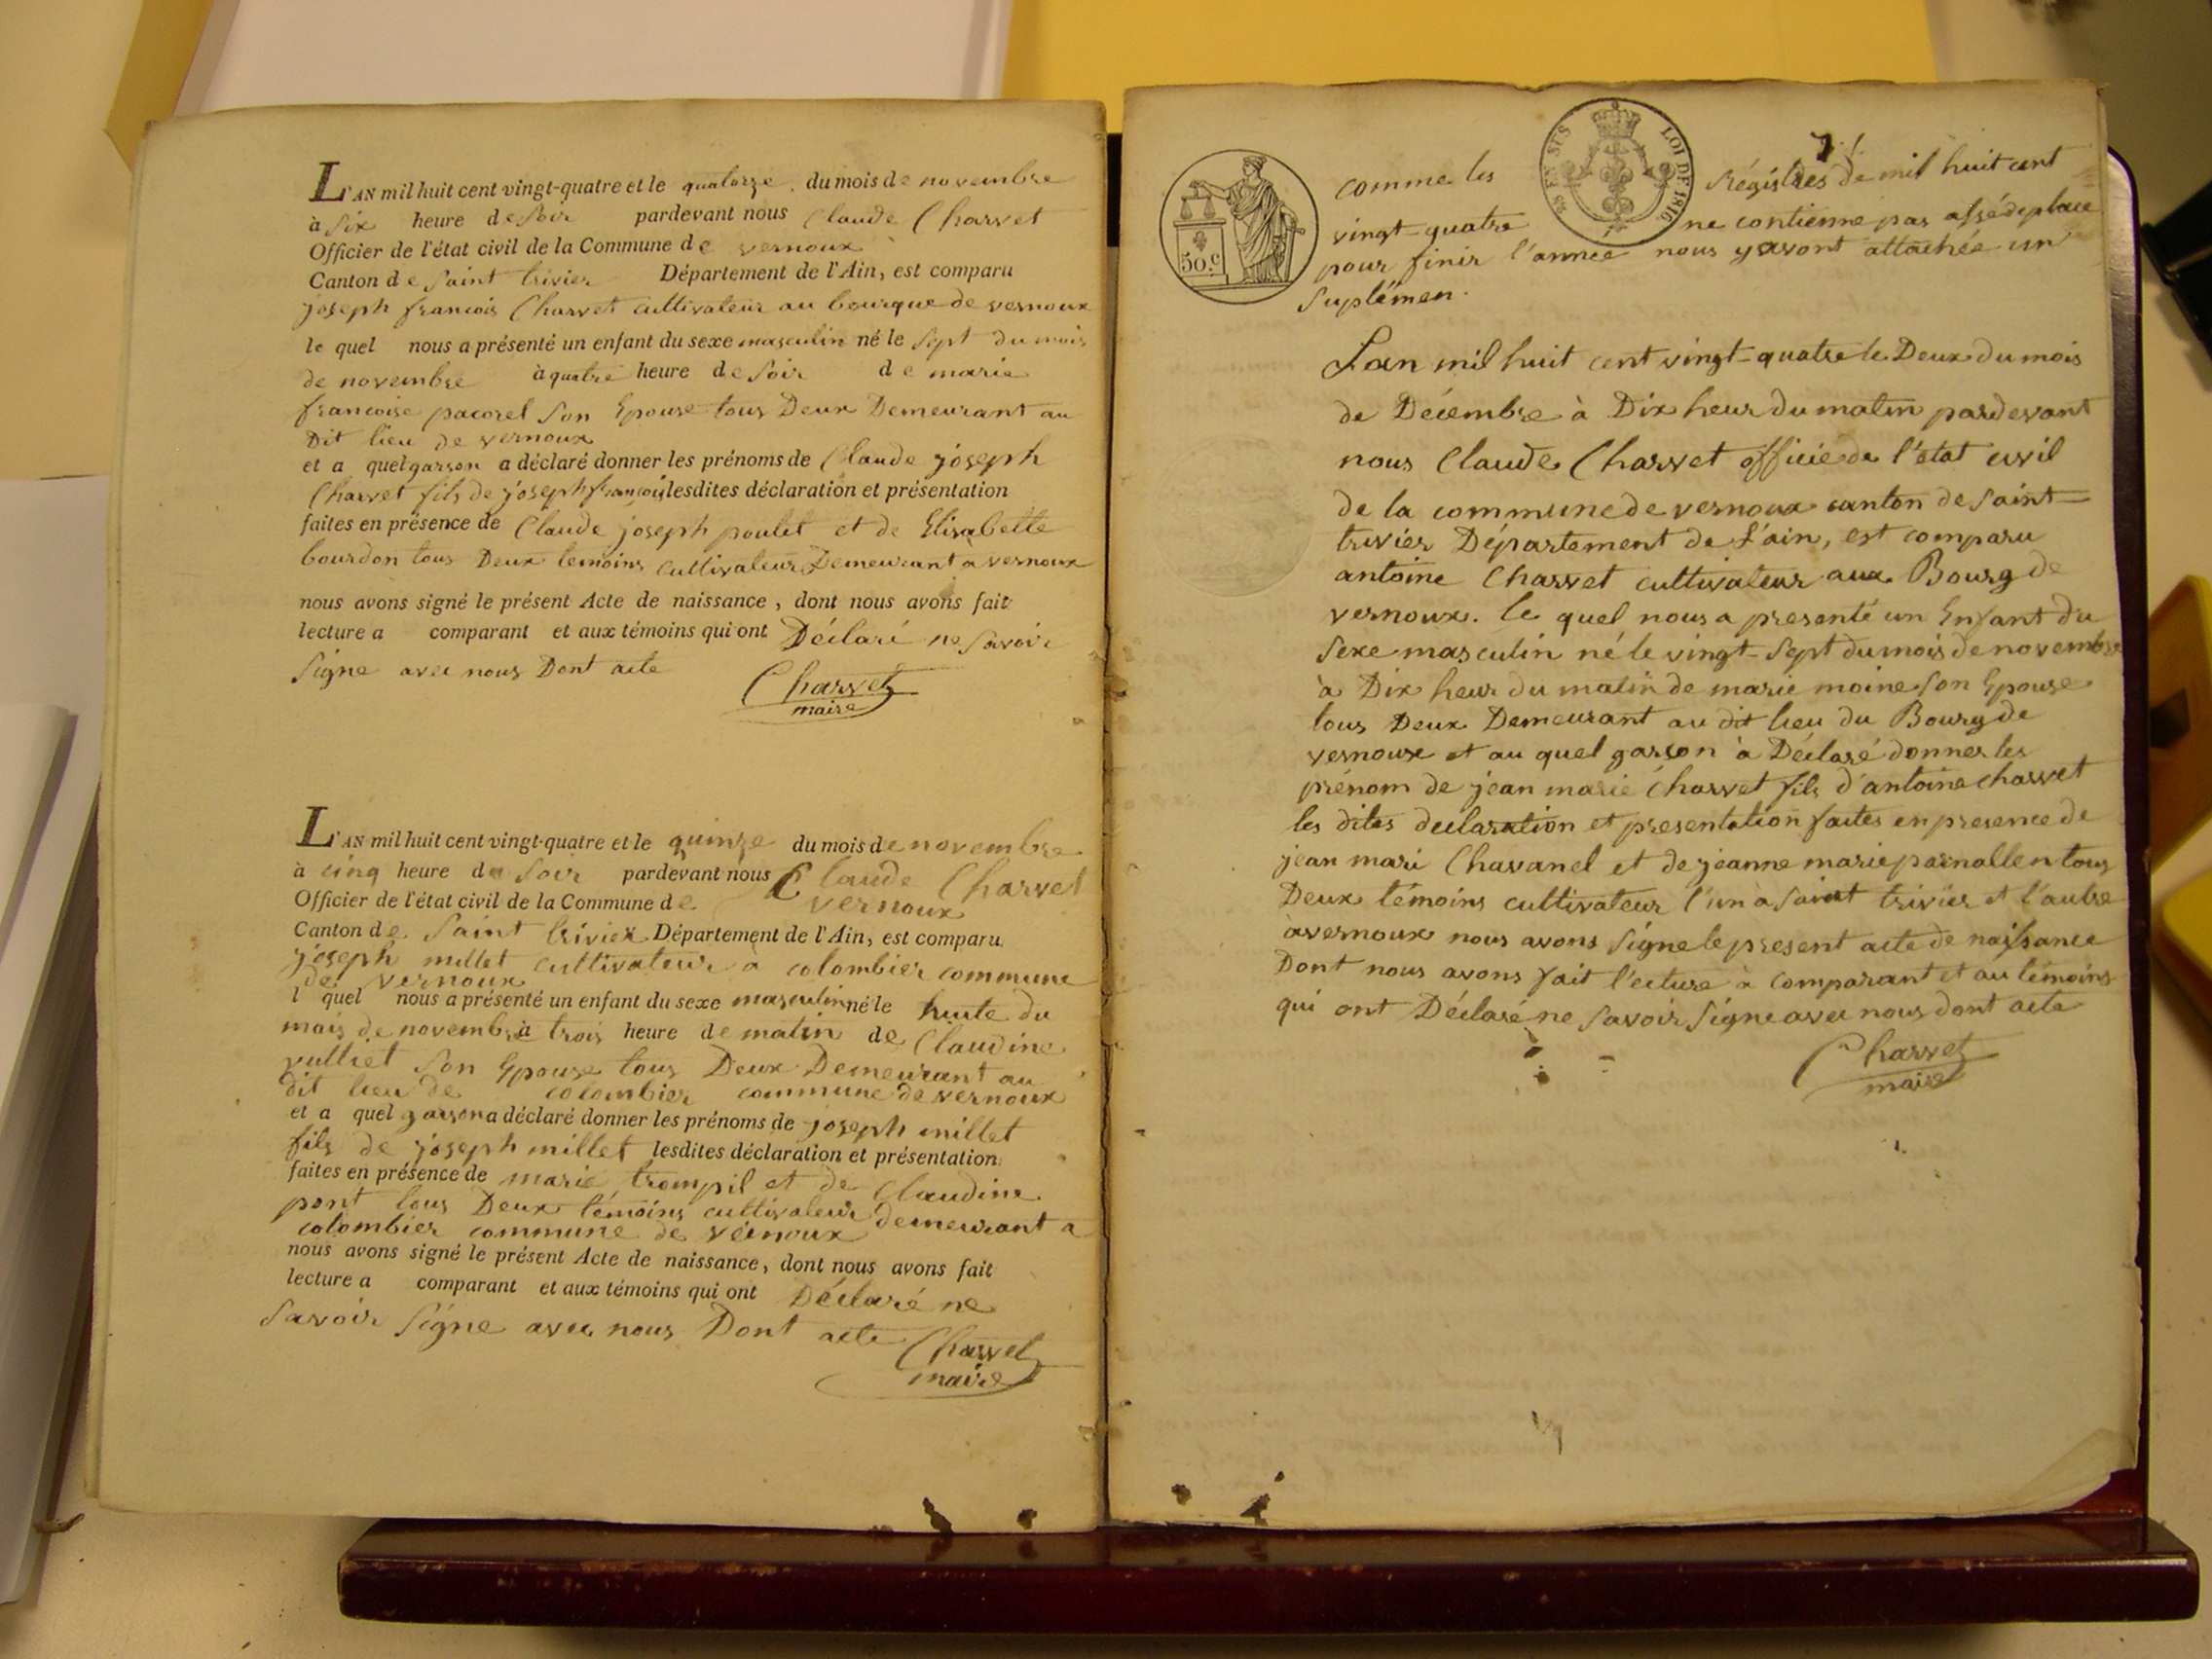 L'AN mil huit cent vingt-quatre et le quatorze du mois de novembre
à six heure de soir pardevant nous Claude Charvet
Officier de l'état civil de la Commune de vernoux
Canton de saint trivier Département de l'Ain, est comparu
joseph francois Charvet cultivateur au bourque de vernoux
le quel nous a présenté un enfant du sexe masculin né le sept du mois
de novembre à quatre heure de soir de marie
francoise pacorel son Epouse tous Deux Demeurant au
Dit lieu de vernoux
et a quel garson a déclaré donner les prénoms de Claude joseph
Charvet fils de joseph francois lesdites déclaration et présentation
faites en présence de Claude joseph poulet et de Elisabette
bourdon tous Deux temoins cultivateur Demeurant a vernoux
nous avons signé le présent Acte de naissance, dont nous avons fait
lecture a comparant et aux témoins qui ont Déclaré ne savoir
signe avec nous Dont acte
Charvet
maire
L'AN mil huit cent vingt-quatre et le quinze du mois de novembre
à cinq heure de soir pardevant nous Claude Charvet
Officier de l'état civil de la Commune de vernoux
Canton de saint trivier Département de l'Ain, est comparu
joseph millet cultivateur à colombier commune
de vernoux
l quel nous a présenté un enfant du sexe masculin né le huite du
mois de novembre à trois heure de matin de Claudine
vulliet son Epouse tous Deux Demeurant au
dit lieu de colombier commune de vernoux
et a quel garson a déclaré donner les prénoms de joseph millet
fils de joseph millet lesdites déclaration et présentation
faites en présence de marie trompil et de Claudine
pont tous Deux témoins cultivateur demeurant a
colombier commune de vernoux
nous avons signé le présent Acte de naissance, dont nous avons fait
lecture a comparant et aux témoins qui ont Déclaré ne
savoir signe avec nous Dont acte
Charvet
maire
50.c
LOI DE 1816
comme les Régistres de mil huit cent
vingt-quatre ne contienne pas assé de place
pour finir l'année nous y avont attachée un
suplémen.
Lan mil huit cent vingt-quatre le Deux du mois
de Décembre à Dix heur du matin pardevant
nous Claude Charvet officie de l'état civil
de la commune de vernoux canton de saint
trivier Département de L'ain, est comparu
antoine Charvet cultivateur aux Bourg de
vernoux. le quel nous a presenté un Enfant du
sexe masculin né le vingt-sept du mois de novembre
à Dix heur du matin de marie moine son Epouse
tous Deux Demeurant au dit lieu du Bourg de
vernoux et au quel garson à Déclaré donner les
prénom de jean marie Charvet fils d'antoine charvet
les dites declaration et presentation faites en presence de
jean mari Chavanel et de jeanne marie tous
Deux témoins cultivateur l'un à saint trivier et l'autre
à vernoux nous avons signe le present acte de naissance
Dont nous avons fait l'ecture à comparant et au témoins
qui ont Déclaré ne savoir signe avec nous dont acte
Charvet
maire